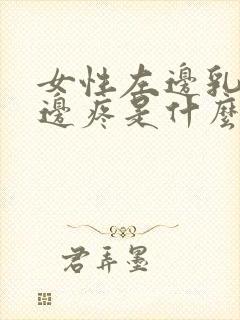 女性左邊乳
邊疼是什麼
君弄墨